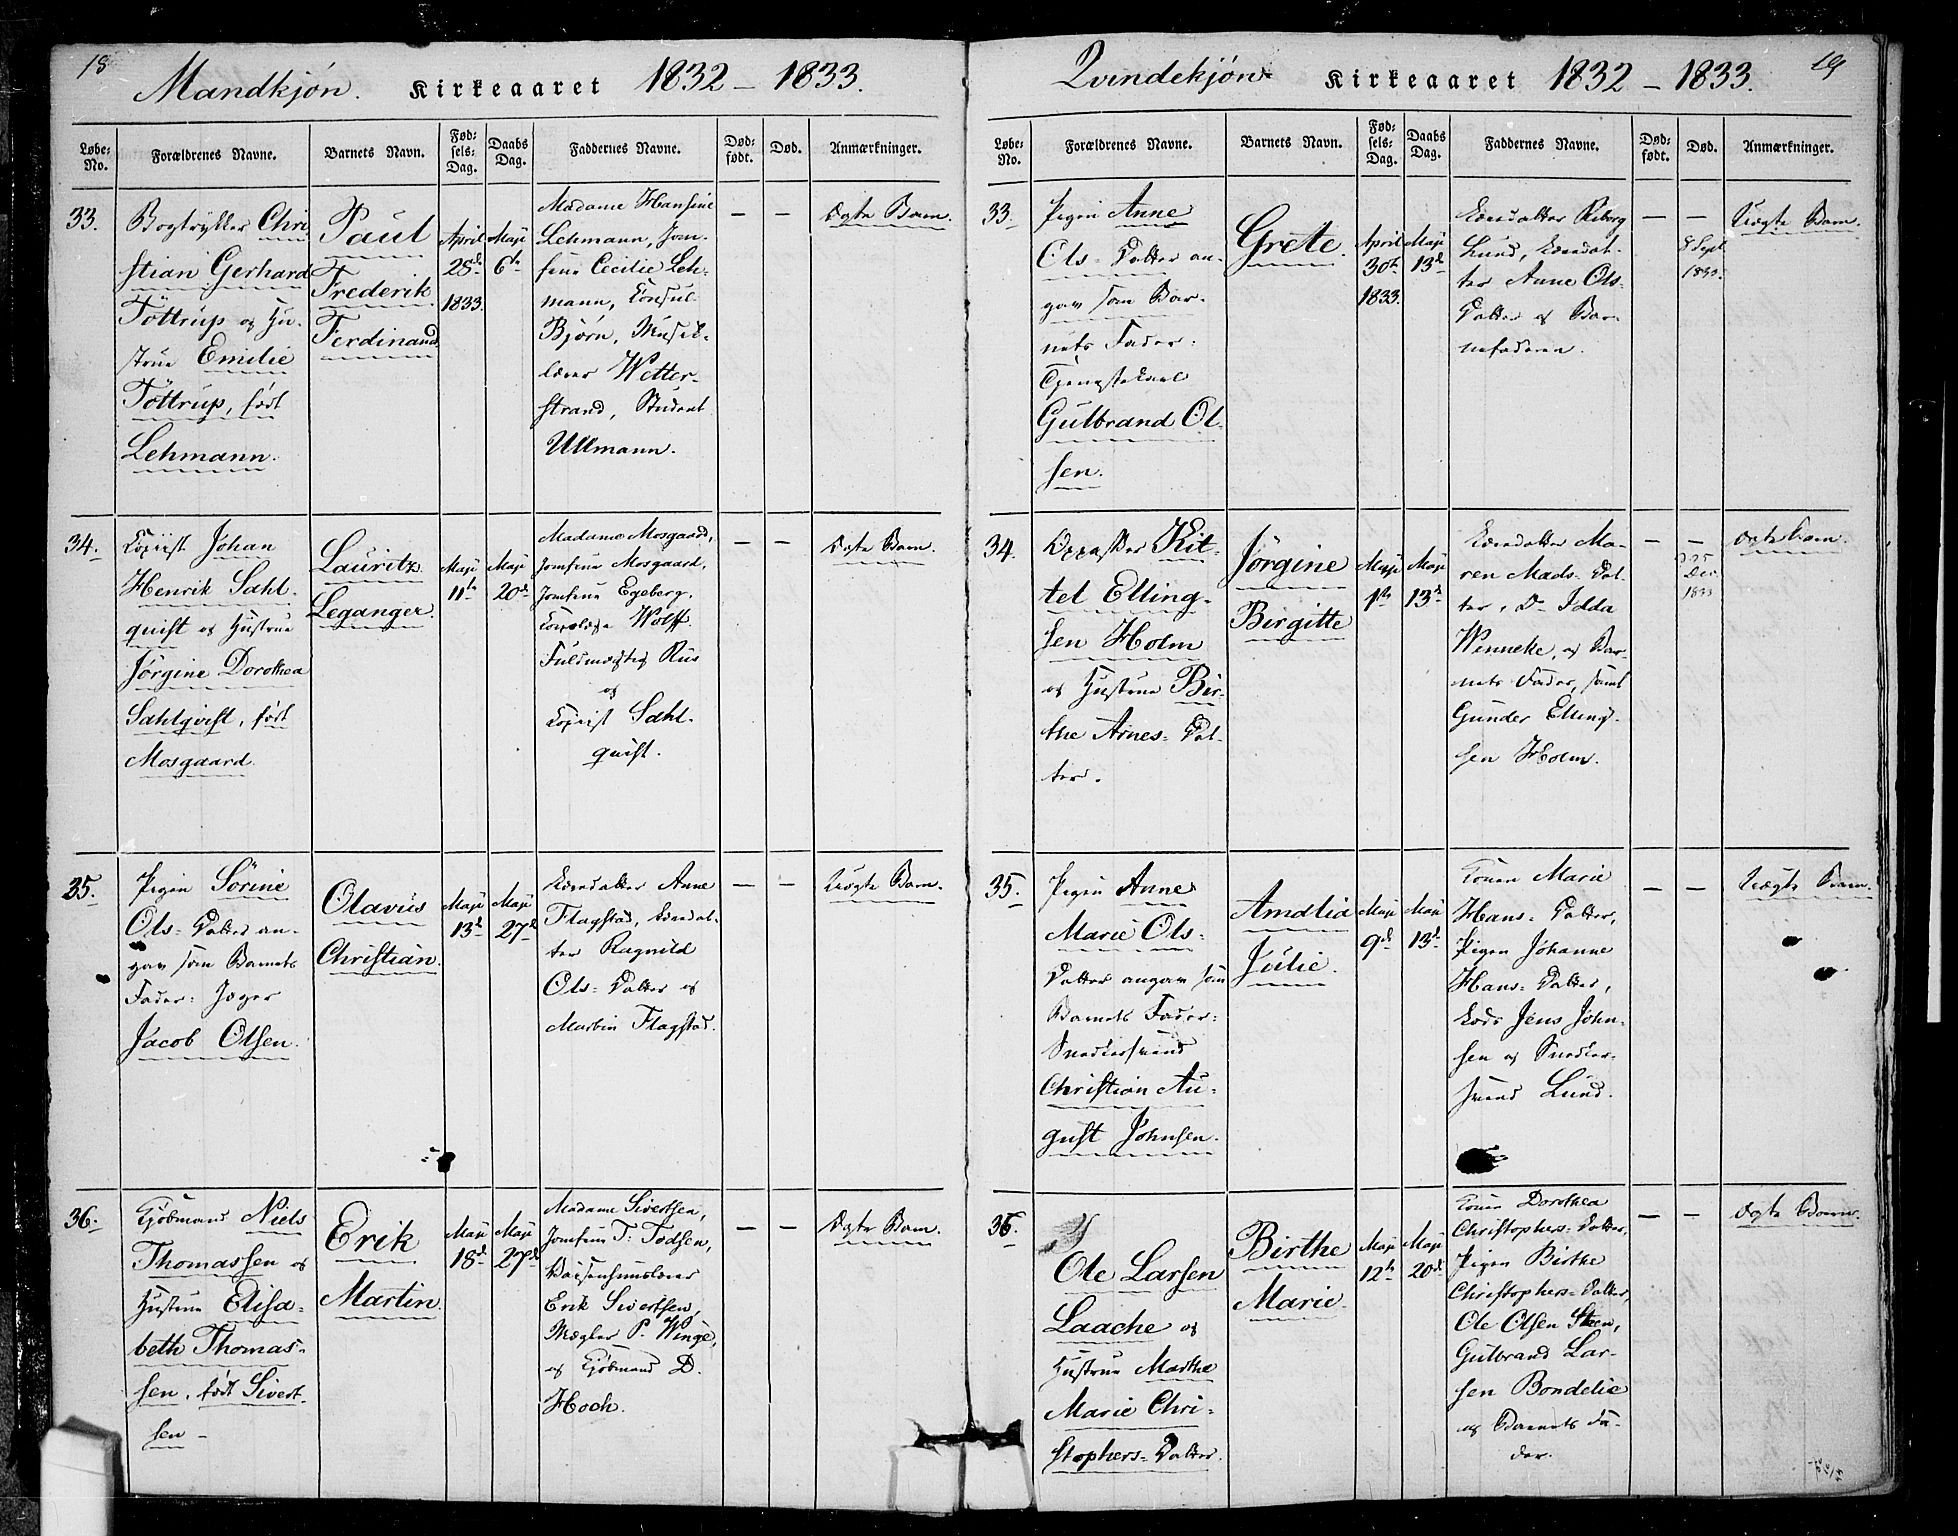 18
Mandkjøn. Kirkeaaret 1832 – 1833.
Løbe-No. Forældrenes Navne. Barnets Navn. Fødsels-Dag. Daabs Dag. Faddernes Navne. Død-født. Død. Anmærkninger.
33.
Bogtrykker Chri
stian Gerhard
Töttrup og Hu-
strue Emilie
Töttrup, født
Lehmann.
Paul
Frederik
Ferdinand
April
28d
1833.
Maji
6te
Madame Hansine
Lehmann, Jom-
frue Cecilie Leh-
mann, Consul
Bjørn, Musik-
lærer Wetter-
strand, Student
Ullmann.
— —
Ægte Barn.
34.
Copiist Johan
Henrik Sahl-
quist og Hustrue
Jörgine Dorothea
Sahlqvist, født
Mosgaard.
Lauritz
Leganger.
Maji
11te
Maji
20d
Madame Mosgaard,
Jomfrue Mosgaard,
Jomfrue Egeberg,
Wolff
Fuldmægtig Rus
og
Copiist Sahl-
quist.
— —
Ægte Barn.
35.
Pigen Sörine
Ols-Datter an-
gav som Barnets
Fader: Jæger
Jacob Olsen.
Olavus
Christian.
Maji
13d
Maji
27d
Anne
Flagstad,
ter Ragnild
Ols-Datter og
Martin Flagstad.
— —
Uægte Barn.
36.
Kjøbmand Niels
Thomassen og
Hustrue Elisa-
beth Thomas-
sen, født Sivert-
sen –
Erik
Martin.
Maji
18d
Maji
27d
Madame Sivertsen,
Jomfrue T. Todsen,
Erik Sivertsen,
Mægler P. Winge,
og Kjøbmand D.
Hoch.
— —
Ægte Barn.
19
Qvindekjøn. Kirkeaaret 1832 – 1833.
Løbe-No. Forældrenes Navne. Barnets Navn. Fødsels-Dag. Daabs Dag. Faddernes Navne. Død-født. Død. Anmærkninger.
33.
Pigen Anne
Ols-Datter an-
gav som Bar-
nets Fader:
Tjenestekarl
Gulbrand Ol-
sen.
Grete.
April
30te
1833.
Maji
13d
Lund,
ter Anne Ols-
Datter og Bar-
nefaderen.
— —
8 Sept
1833.
Uægte Barn.
34.
Opasser Kit-
tel Elling-
sen Holm
og Hustrue Bir-
the Arnes-Dat-
ter.
Jörgine
Birgitte
Maji
1te
Maji
13d
Ma-
ren Mads-Dat-
ter, Do Idda
Winneke, og Bar-
nets Fader, samt
Gunder Elling-
sen Holm.
— —
25
Dec
1833
Ægte Barn.
35.
Pigen Anne
Marie Ols-
Datter angav som
Barnets Fader:
Snedkersvend
Christian Au-
gust Johnsen.
Amalia
Julie.
Maji
9d
Maji
13d
Konen Marie
Hans-Datter,
Pigen Johanne
Hans-Datter,
Jens John-
sen og Snedker-
svend Lund.
— —
Uægte Barn.
36.
Ole Larsen
Laache og
Hustrue Marthe
Marie Chri-
stophers-Datter.
Birthe
Marie.
Maji
12te
Maji
20d
Konen Dorothea
Christophers-Datter,
Pigen Birthe
Christophers-Datter,
Ole Olsen Steen,
Gulbrand Lar-
sen Bondelie
og Barnets Fa-
der.
— —
Ægte Barn.